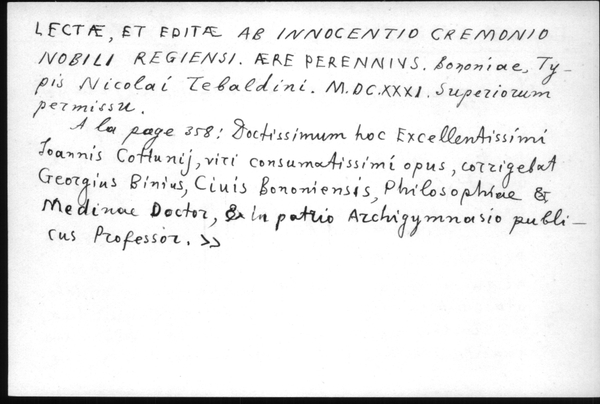 LECTÆ, ET EDITÆ AB INNOCENTIO CREMONIO
NOBILI REGIENSI. ÆRE PERENNIVS. Bononiae, Ty-
pis Nicolai Tebaldini. M.DC.XXXI. Superiorum
permissu.
A la page 358: Doctissimum hoc Excellentissimi
Ioannis Cottunij, viri consumatissimi opus, corrigebat
Georgius Binius, Ciuis Bononiensis, Philosophiae &
Medinae Doctor, & In patrio Archigymnasio publi-
cus Professor. »